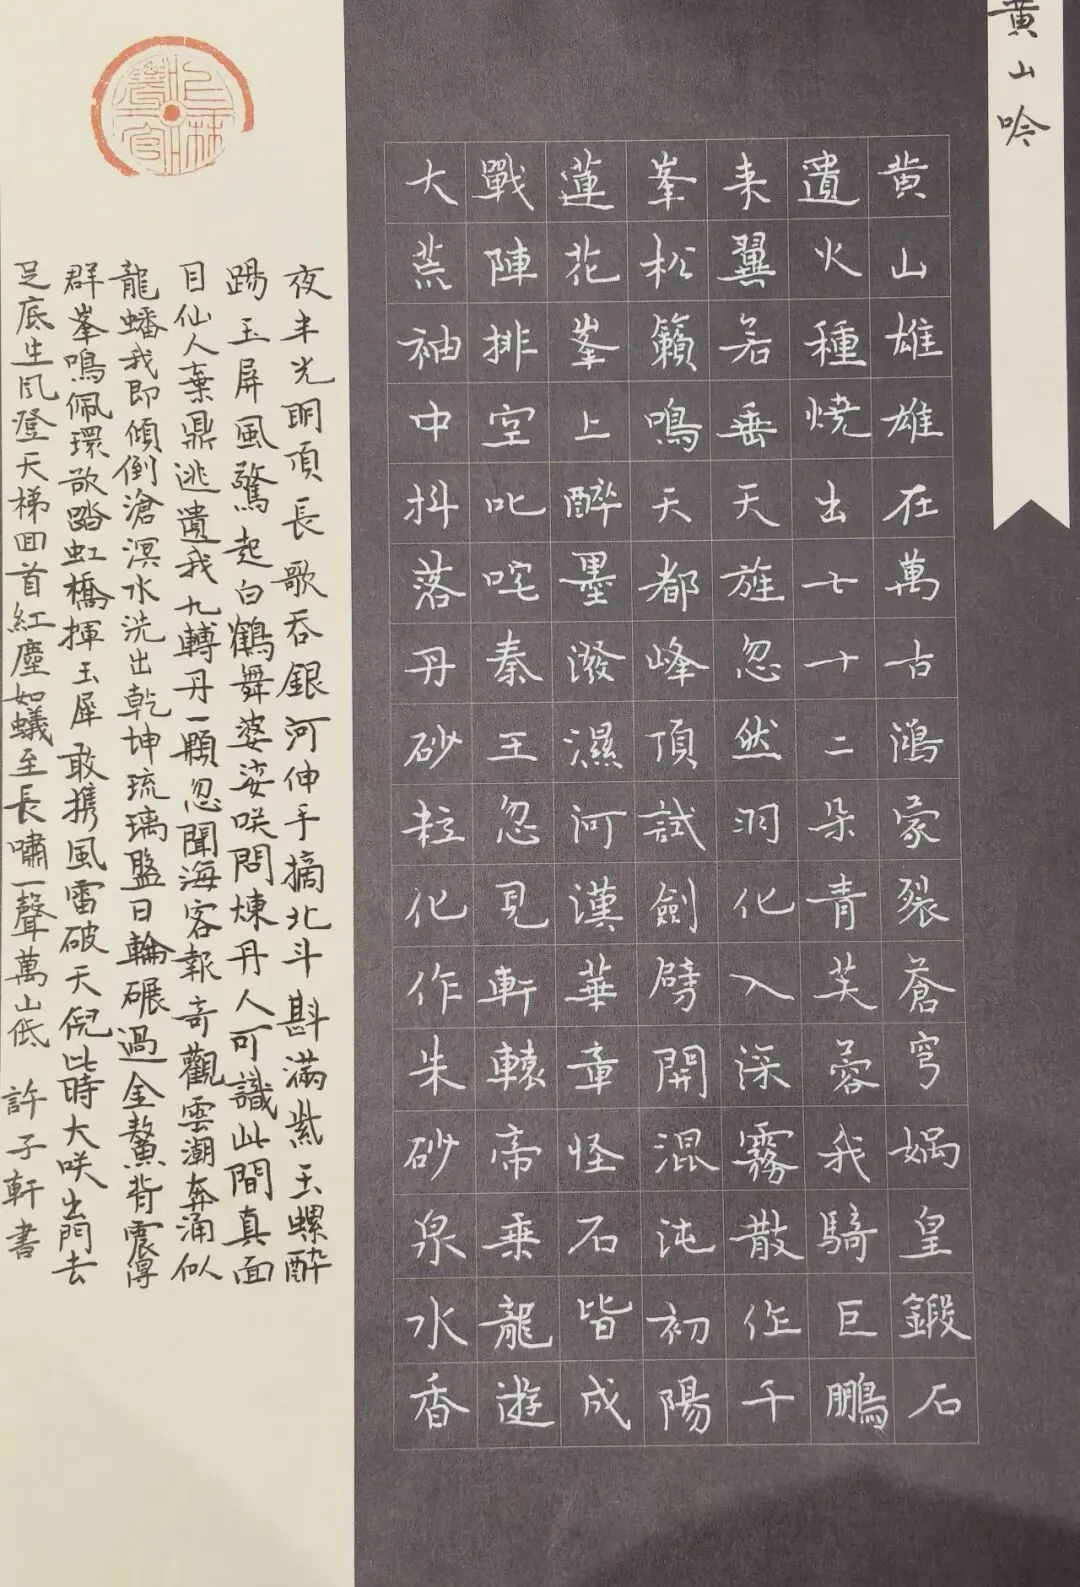 黄山吟
黄山雄雄在萬古鴻蒙裂蒼穹媧皇鍛石
遺火種燒出七十二朵青芙蓉我騎巨鵬
来翼若垂天旌忽然羽化入深霧散作千
峯松籟鳴天都峰頂試劍劈開混沌初陽
蓮花峯上醉墨潑濕河漢華章怪石皆成
戰陣排空叱咤秦王忽見軒轅帝乘龍遊
大荒袖中抖落丹砂粒化作朱砂泉水香
夜半光明頂長歌吞銀河伸手摘北斗斟滿紫玉螺醉
踢玉屏風驚起白鶴舞婆娑咲問煉丹人可識此間真面
目仙人棄鼎逃遺我九轉丹一顆忽聞海客報奇觀雲潮奔涌似
龍蟠我即傾倒滄溟水洗出乾坤琉璃盤日輪碾過金鰲背震得
群峯鳴佩環欲踏虹橋揮玉犀敢携風雷破天倪此時大咲出門去
足底生風登天梯回首紅塵如蟻至長嘯一聲萬山低 許子軒書